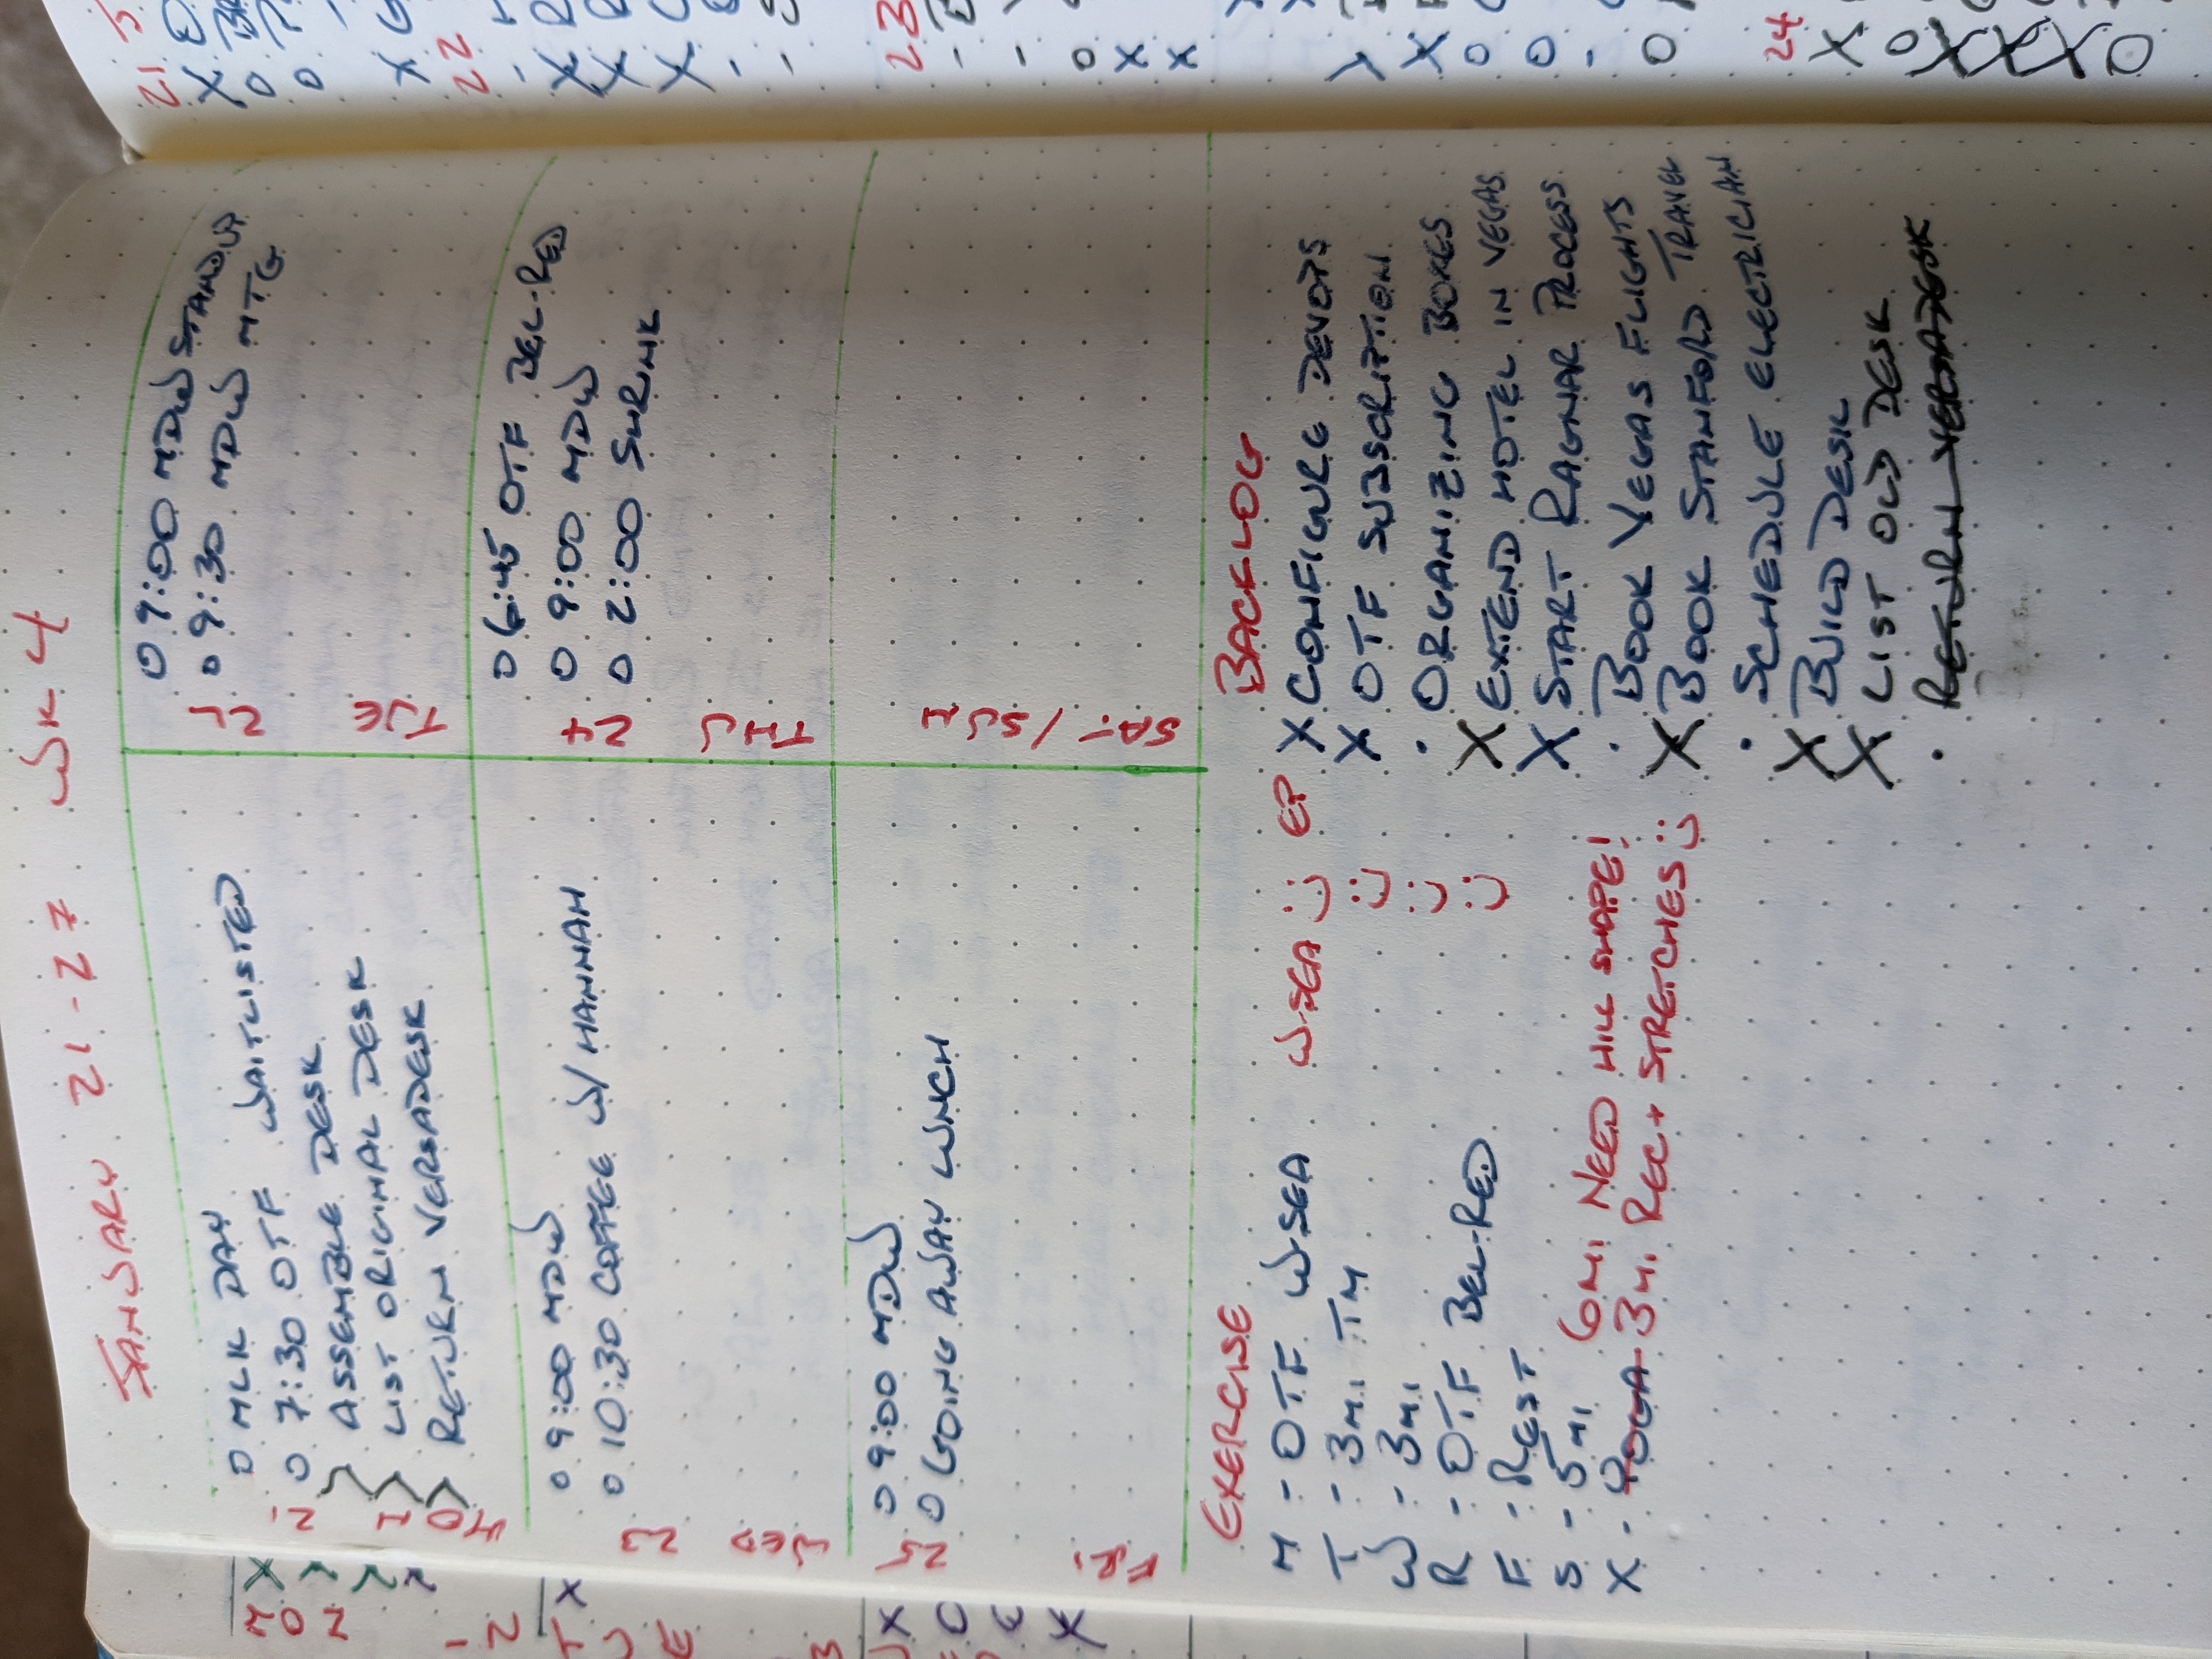 JANUARY 21-27 WK 4
MON 21
O MLK DAY
O 7:30 OTF WAITLISTED
> ASSEMBLE DESK
> LIST ORIGINAL DESK
> RETURN VERSADESK
TUE 22
O 9:00 MDW STANDUP
O 9:30 MDW MTG
WED 23
O 9:00 MDW
O 10:30 COFFEE W/ HANNAH
THU 24
O 6:45 OTF BEL-RED
O 9:00 MDW
O 2:00 SHRINK
FRI 25
O 9:00 MDW
O GOING AWAY LUNCH
SAT/SUN
EXERCISE
M - OTF W-SEA W-SEA :) EP
T - 3MI TM :)
W - 3MI :)
R - OTF BEL-RED :)
F - REST
S - 5MI 6MI NEED HILL SHAPE!
X - YOGA 3MI REC + STRETCHES :)
BACKLOG
X CONFIGURE DEVOPS
X OTF SUBSCRIPTION
· ORGANIZING BOXES
X EXTEND HOTEL IN VEGAS
X START RAGNAR PROCESS
· BOOK VEGAS FLIGHTS
X BOOK STANFORD TRAVEL
· SCHEDULE ELECTRICIAN
X BUILD DESK
X LIST OLD DESK
· RETURN VERSADESK
21
22
23
24